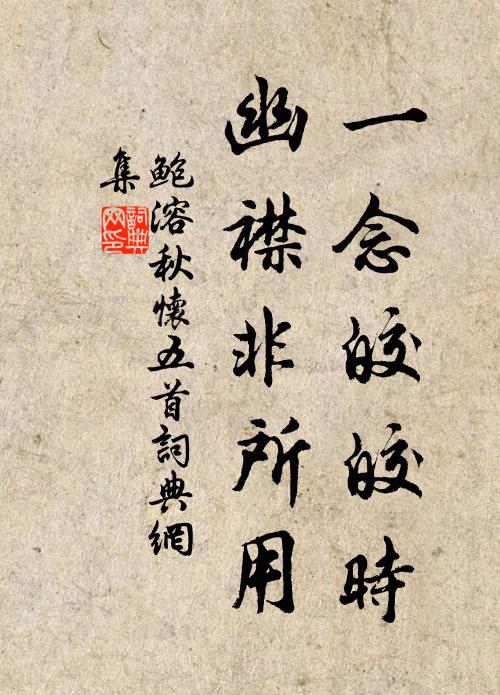 一念皎皎時
幽襟非所用
鲍溶秋懷五首詞典網
集
詞典網印